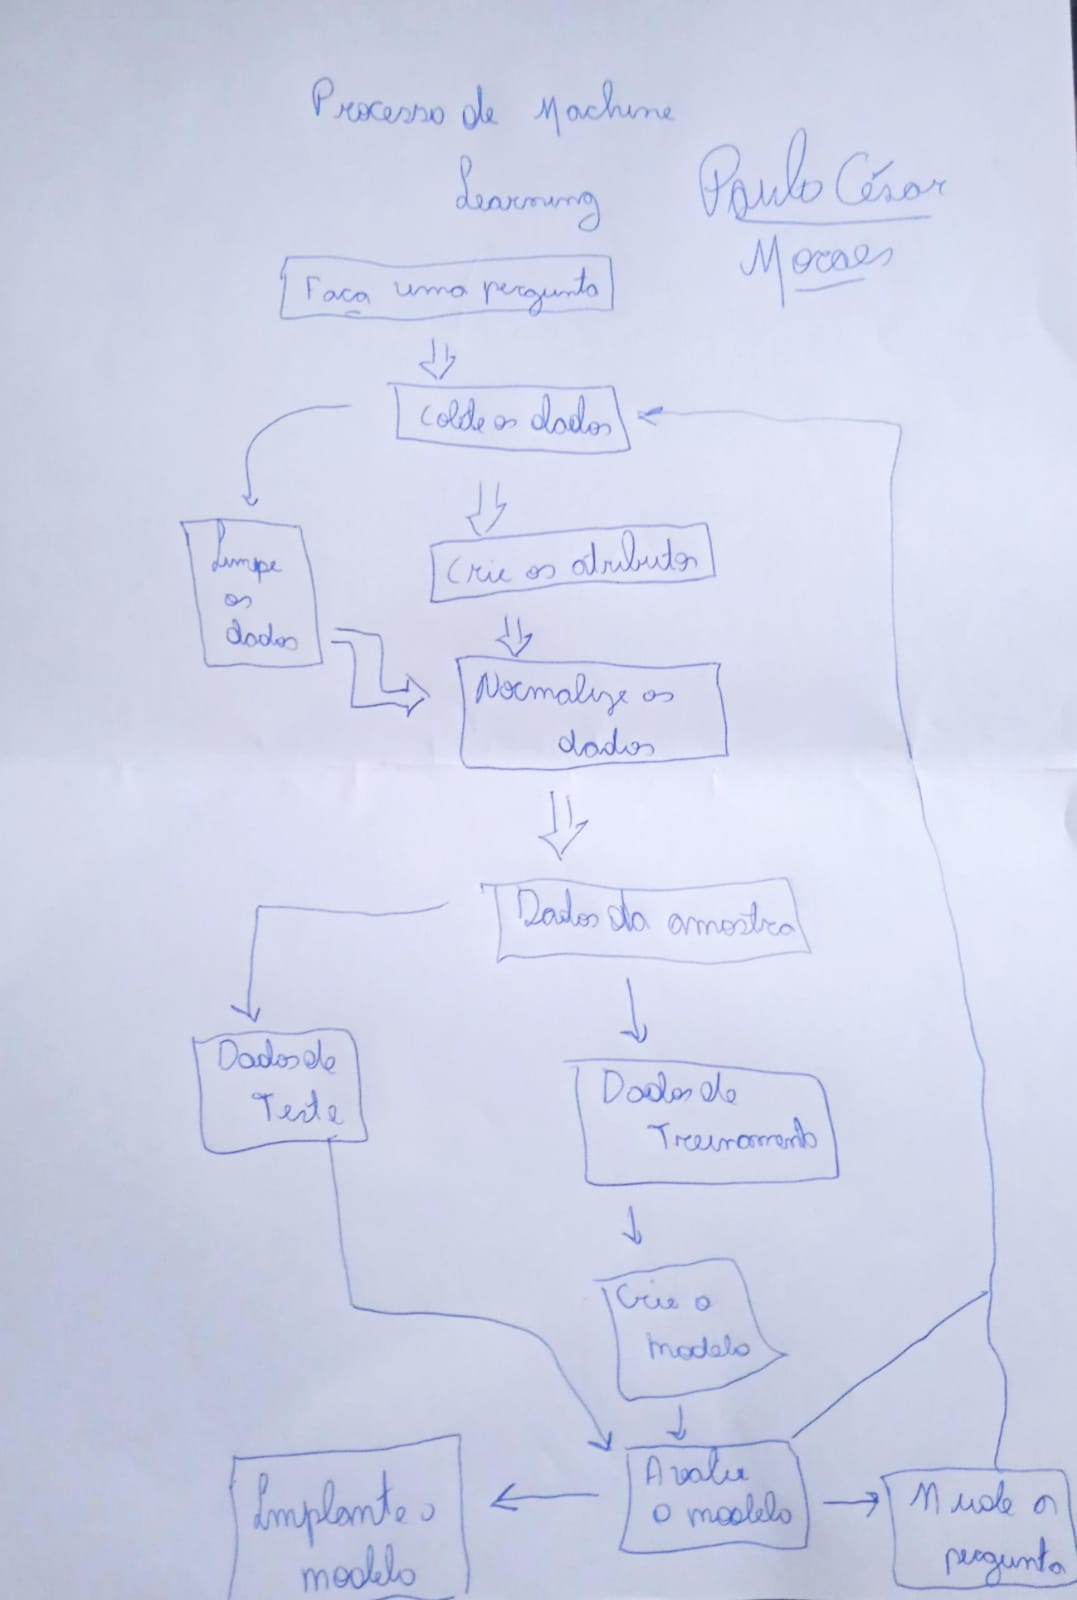 Processo de Machine
Learning
Paulo César
Moraes
Faça uma pergunta
Colete os dados
Limpe
os
dados
Crie os atributos
Normalize os
dados
Dados da amostra
Dados de
Teste
Dados de
Treinamento
Crie o
modelo
Avalie
o modelo
Implante o
modelo
Mude a
pergunta